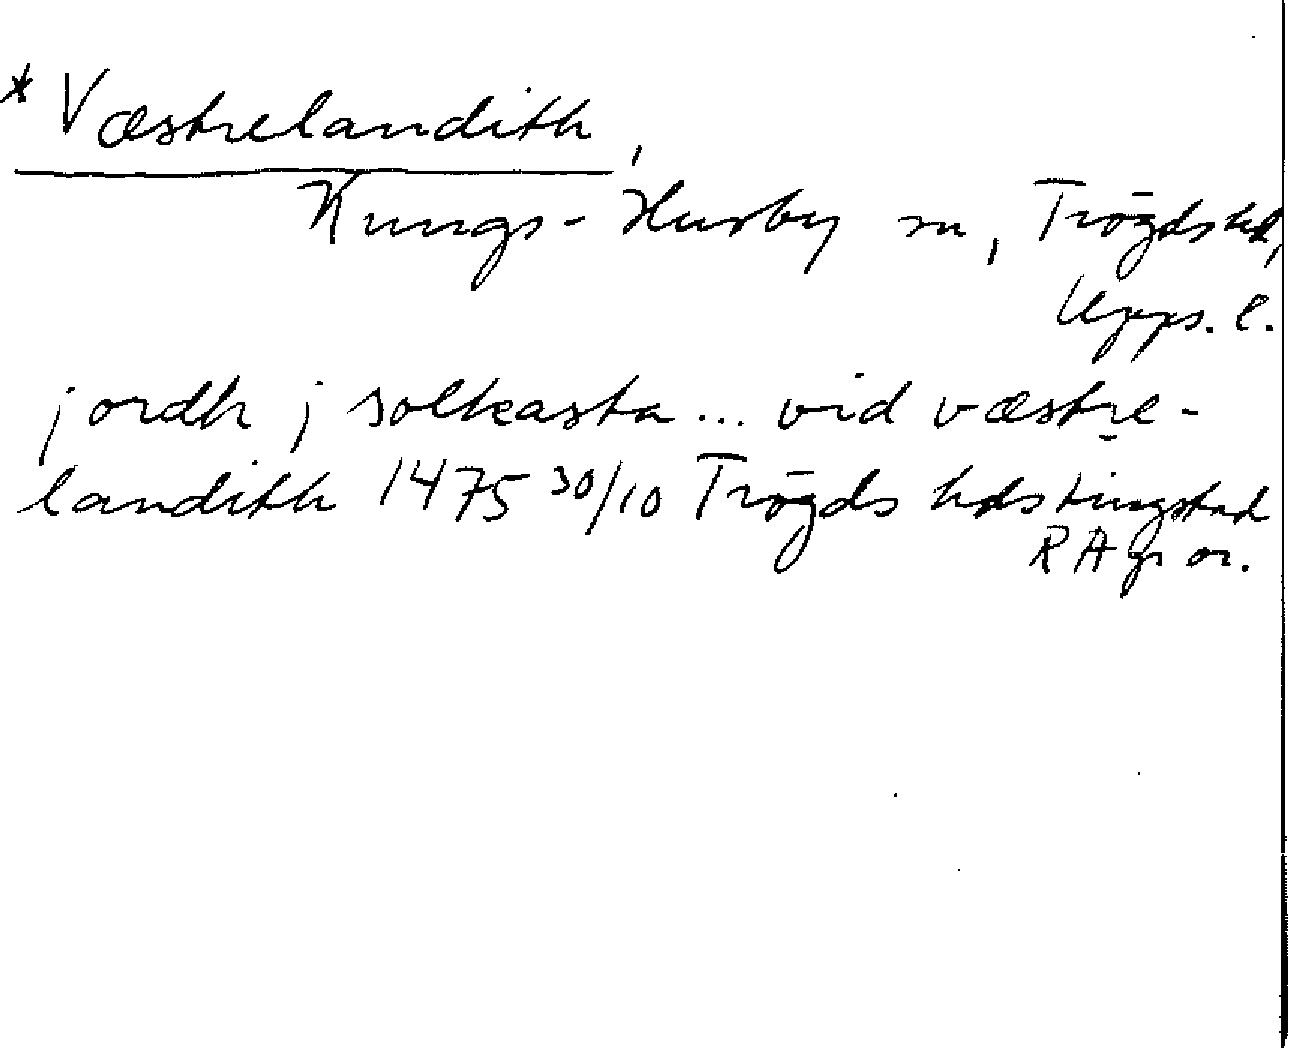 * Væstrelandith,
Kungs-Husby sn, Trögds hd,
Upps. l.
jordh j solkasta... vid væstre-
landith 1475 30/10 Trögds hds tingstad
RA p or.